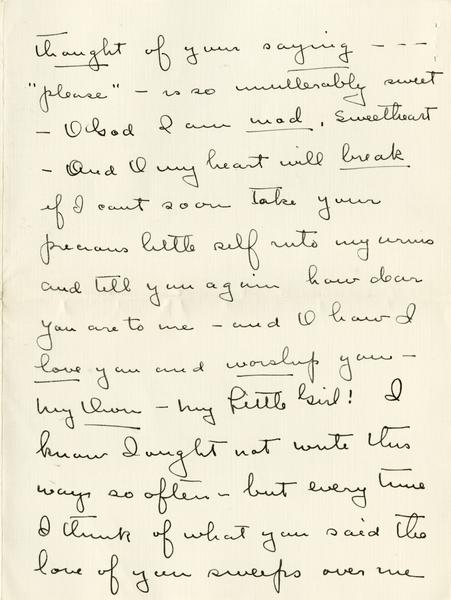 thought of your saying - - -
"please" - is so unutterably sweet
- O God I am mad, Sweetheart
- And O my heart will break
if I cant soon take your
precious little self into my arms
and tell you again how dear
you are to me - and O how I
love you and worship you -
My Own - My Little Girl! I
know I ought not write this
way so often - but every time
I think of what you said the
love of you sweeps over me